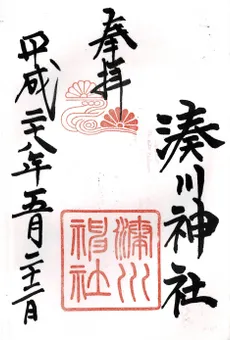 奉拝
湊川神社
湊川神社
平成二十八年五月二十二日